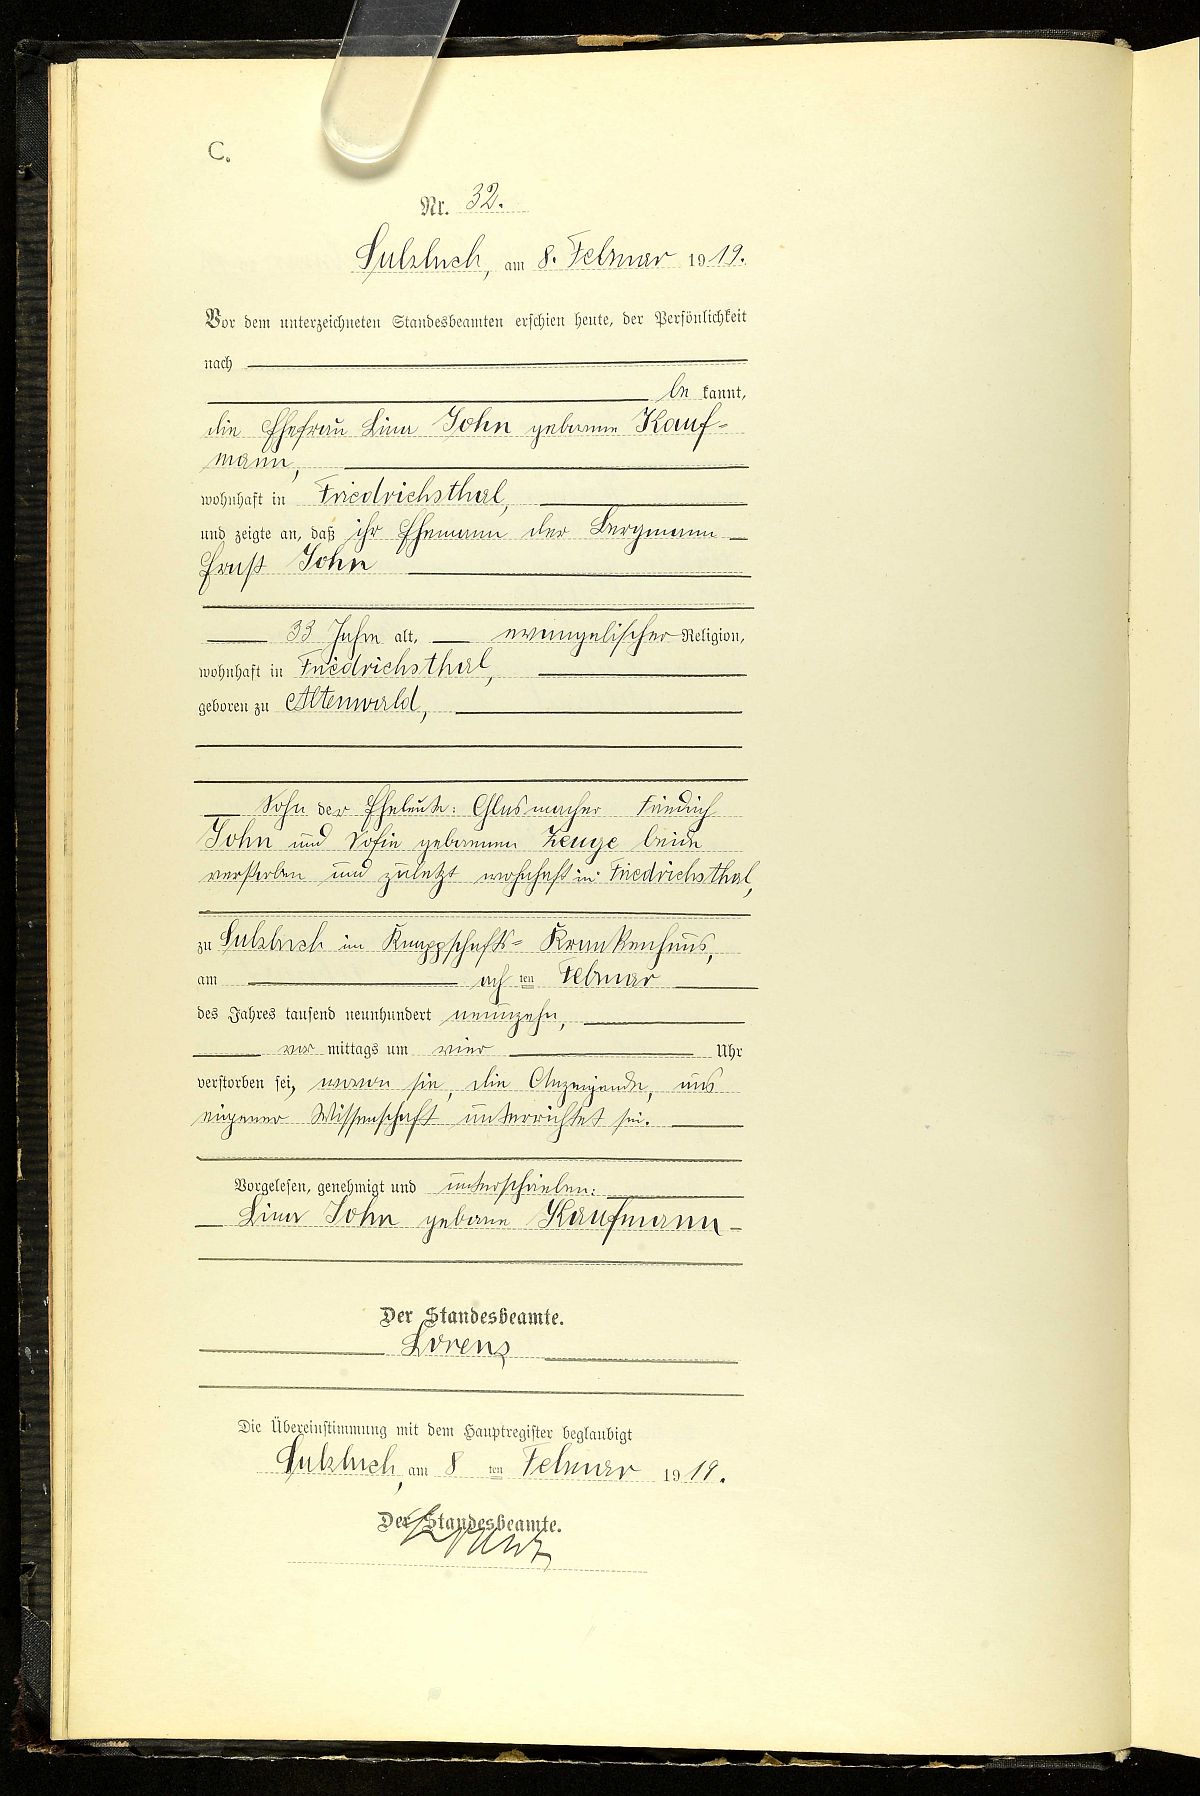 C.
Nr. 32.
Sulzbach, am 8. Februar 1919.
Vor dem unterzeichneten Standesbeamten erschien heute, der Persönlichkeit
nach
be kannt,
die Ehefrau Lina John geborene Kauf-
mann,
wohnhaft in Friedrichsthal,
und zeigte an, daß ihr Ehemann der Bergmann
Ernst John
33 Jahre alt, evangelischer Religion,
wohnhaft in Friedrichsthal,
geboren zu Altenwald,
Sohn der Eheleute: Glasmacher Friedrich
John und Sofie geborenen Zeuge beide
verstorben und zuletzt wohnhaft in Friedrichsthal,
zu Sulzbach im Knappschafts- Krankenhaus,
am ach ten Februar
des Jahres tausend neunhundert neunzehn,
vor mittags um vier Uhr
verstorben sei, wovon sie, die Anzeigende, aus
eigener Wissenschaft unterrichtet sei.
Vorgelesen, genehmigt und unterschrieben:
Lina John geborne Kaufmann
Der Standesbeamte.
Lorenz
Die Übereinstimmung mit dem Hauptregister beglaubigt
Sulzbach, am 8 ten Februar 1919.
Der Standesbeamte.
Lorenz